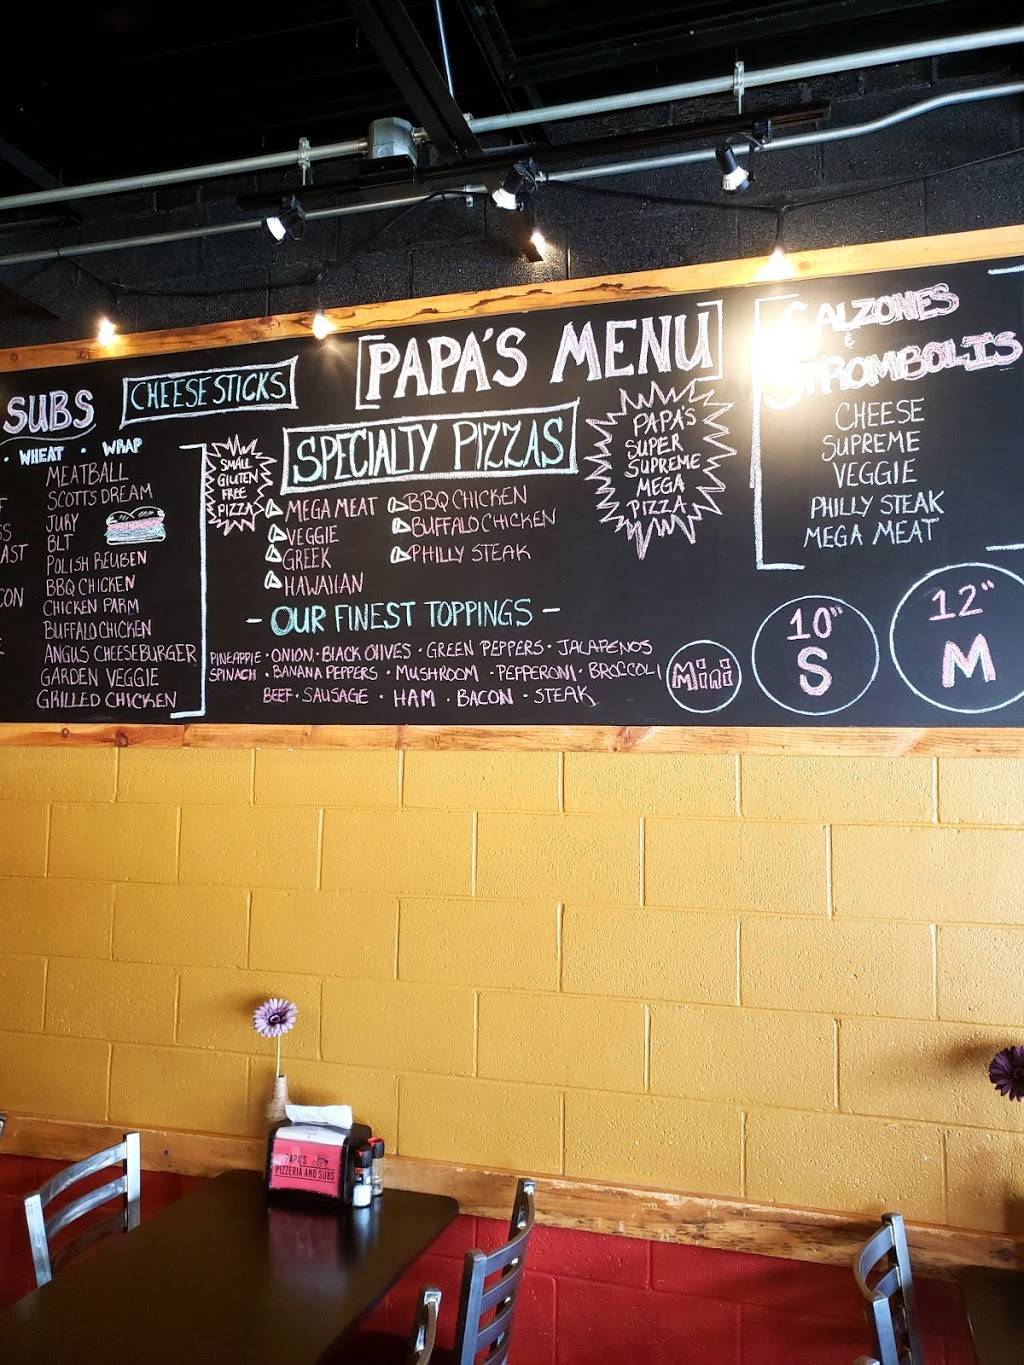 PAPA'S MENU
CHEESE STICKS
SUBS
• WHEAT • WRAP
MEATBALL
SCOTTS DREAM
JURY
BLT
POLISH REUBEN
BBQ CHICKEN
CHICKEN PARM
BUFFALO CHICKEN
ANGUS CHEESEBURGER
GARDEN VEGGIE
GRILLED CHICKEN
SMALL
GLUTEN
FREE
PIZZA
SPECIALTY PIZZAS
MEGA MEAT
VEGGIE
GREEK
HAWAIIAN
BBQ CHICKEN
BUFFALO CHICKEN
PHILLY STEAK
PAPA'S
SUPER
SUPREME
MEGA
PIZZA
- OUR FINEST TOPPINGS -
PINEAPPLE • ONION • BLACK OLIVES • GREEN PEPPERS • JALAPENOS
SPINACH • BANANA PEPPERS • MUSHROOM • PEPPERONI • BROCCOLI
BEEF • SAUSAGE • HAM • BACON • STEAK
CALZONES
&
STROMBOLIS
CHEESE
SUPREME
VEGGIE
PHILLY STEAK
MEGA MEAT
Mini
10"
S
12"
M
PAPA'S
PIZZERIA AND SUBS